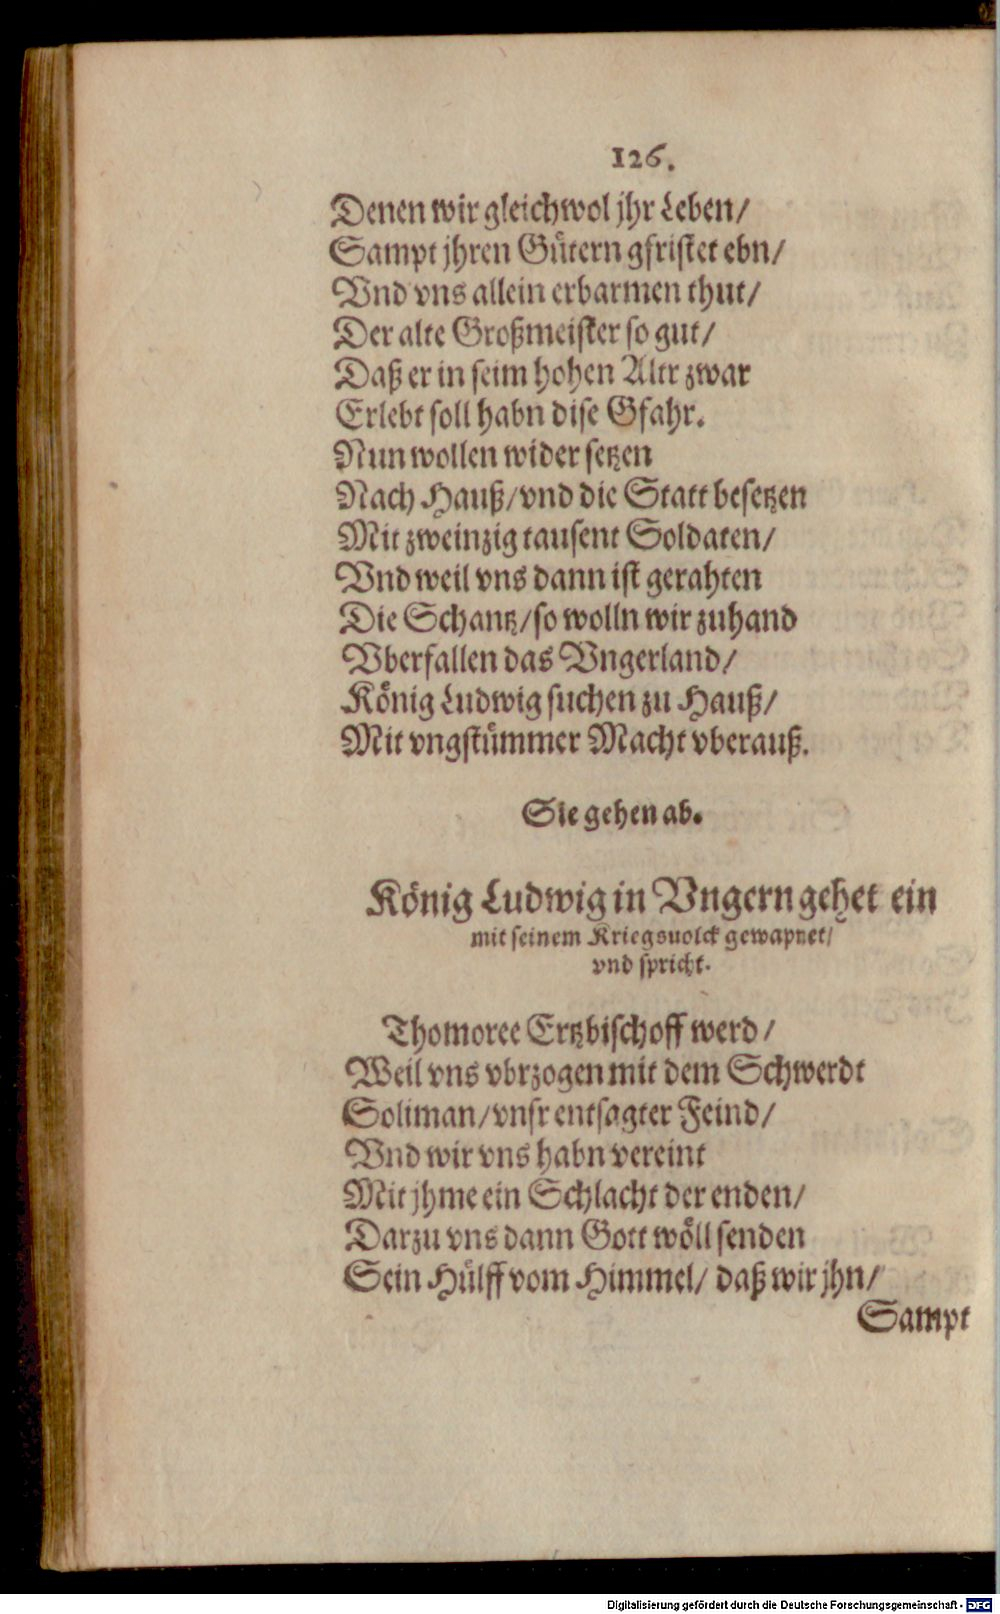 126.
Denen wir gleichwol jhr Leben/
Sampt jhren Gütern gfristet ebn/
Vnd vns allein erbarmen thut/
Der alte Großmeister so gut/
Daß er in seim hohen Altr zwar
Erlebt soll habn dise Gfahr.
Nun wollen wider setzen
Nach Hauß/vnd die Statt besetzen
Mit zweinzig tausent Soldaten/
Vnd weil vns dann ist gerahten
Die Schantz/so wolln wir zuhand
Vberfallen das Vngerland/
König Ludwig suchen zu Hauß/
Mit vngstümmer Macht vberauß.
Sie gehen ab.
König Ludwig in Vngern gehet ein
mit seinem Kriegsuolck gewapnet/
vnd spricht.
Thomoree Ertzbischoff werd/
Weil vns vbrzogen mit dem Schwerdt
Soliman/vnsr entsagter Feind/
Vnd wir vns habn vereint
Mit jhme ein Schlacht der enden/
Darzu vns dann Gott wöll senden
Sein Hülff vom Himmel/ daß wir jhn/
Sampt
Digitalisierung gefördert durch die Deutsche Forschungsgemeinschaft - DFG